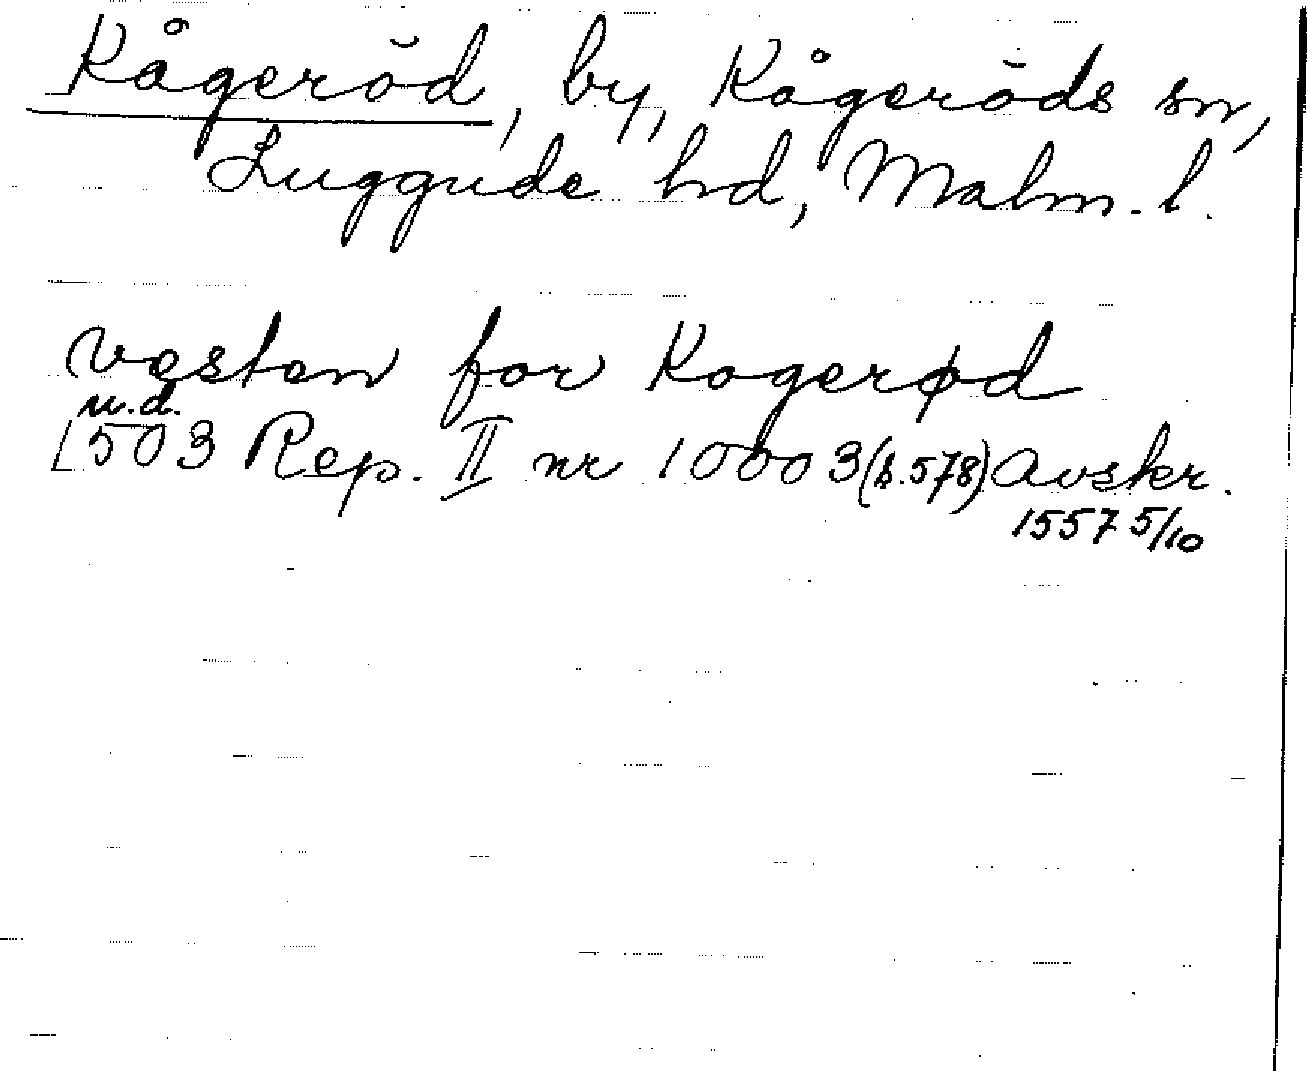 Kågeröd, by, Kågeröds sn,
Luggude hd, Malm. l.
vesten for Kogerød
u.d.
[503 Rep. II nr 10003 (s. 578) Avskr.
1557 5/10